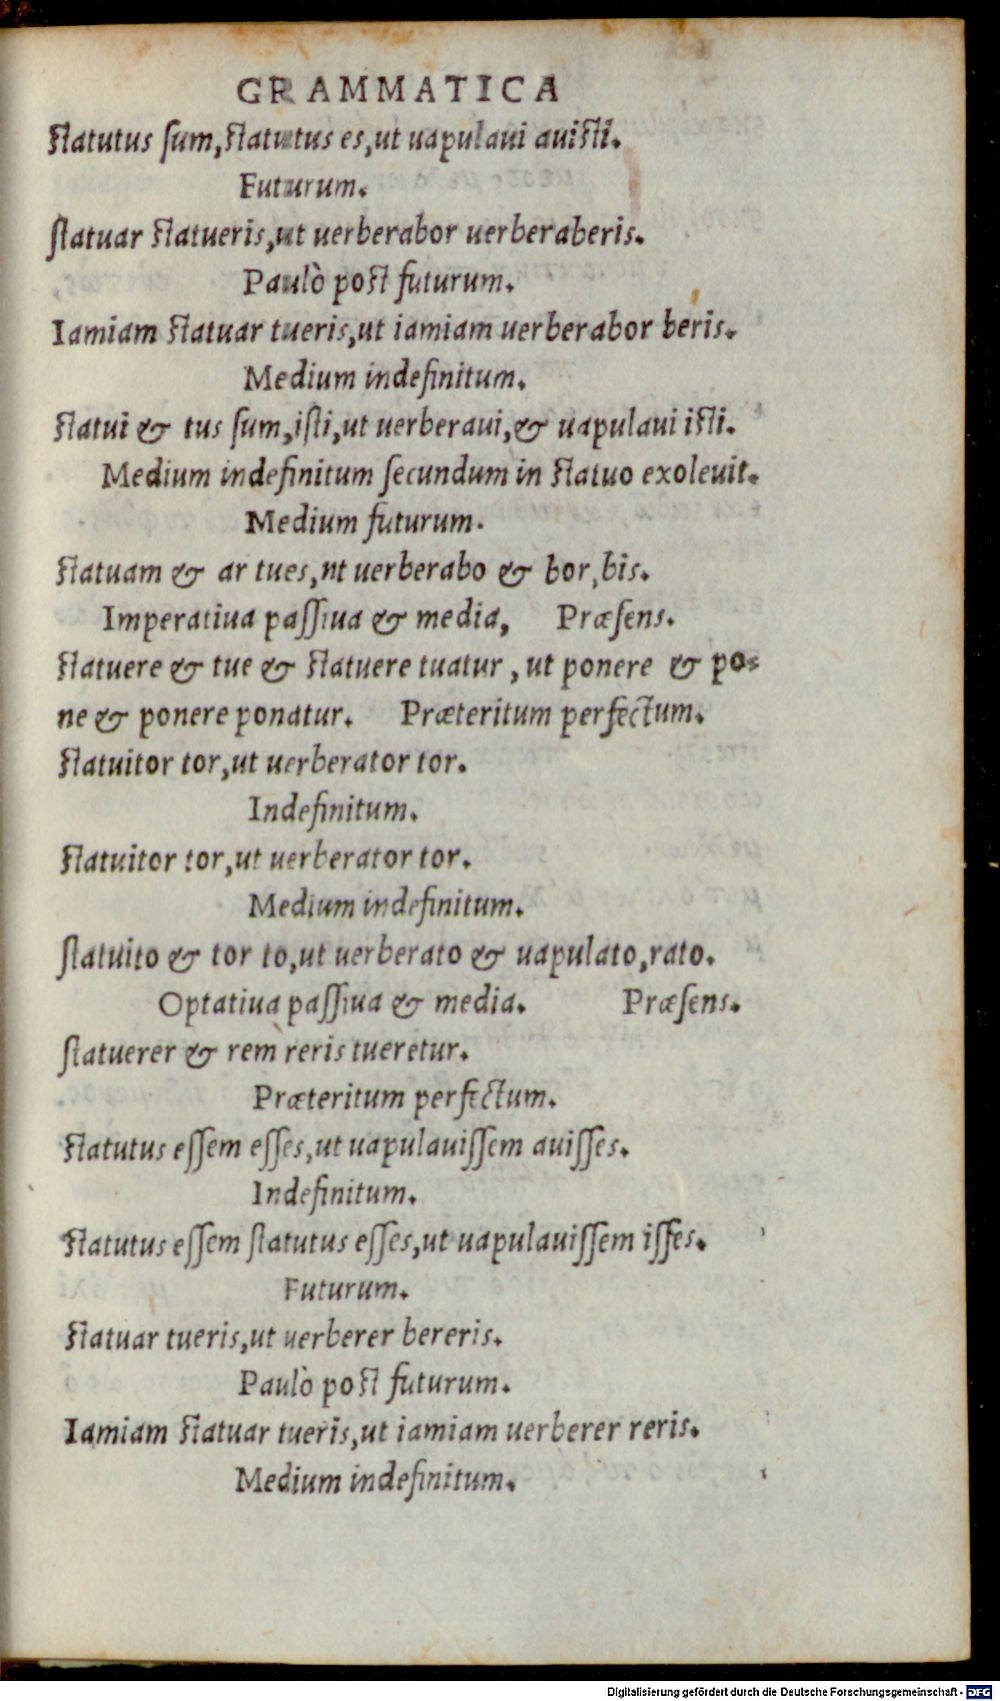 GRAMMATICA
ſtatutus ſum,ſtatutus es,ut uapulaui auiſti.
Futurum.
ſtatuar ſtatueris,ut uerberabor uerberaberis.
Paulò poſt futurum.
Iamiam ſtatuar tueris,ut iamiam uerberabor beris.
Medium indefinitum.
ſtatui & tus ſum,iſti,ut uerberaui,& uapulaui iſti.
Medium indefinitum ſecundum in ſtatuo exoleuit.
Medium futurum.
ſtatuam & ar tues,nt uerberabo & bor,bis.
Imperatiua paſſiua & media, Præſens.
ſtatuere & tue & ſtatuere tuatur, ut ponere & po-
ne & ponere ponatur. Præteritum perfectum.
ſtatuitor tor,ut uerberator tor.
Indefinitum.
ſtatuitor tor,ut uerberator tor.
Medium indefinitum.
ſtatuito & tor to,ut uerberato & uapulato,rato.
Optatiua paſſiua & media. Præſens.
ſtatuerer & rem reris tueretur.
Præteritum perfectum.
ſtatutus eſſem eſſes,ut uapulauiſſem auiſſes.
Indefinitum.
ſtatutus eſſem ſtatutus eſſes,ut uapulauiſſem iſſes.
Futurum.
ſtatuar tueris,ut uerberer bereris.
Paulò poſt futurum.
Iamiam ſtatuar tueris,ut iamiam uerberer reris.
Medium indefinitum.
Digitalisierung gefördert durch die Deutsche Forschungsgemeinschaft - DFG